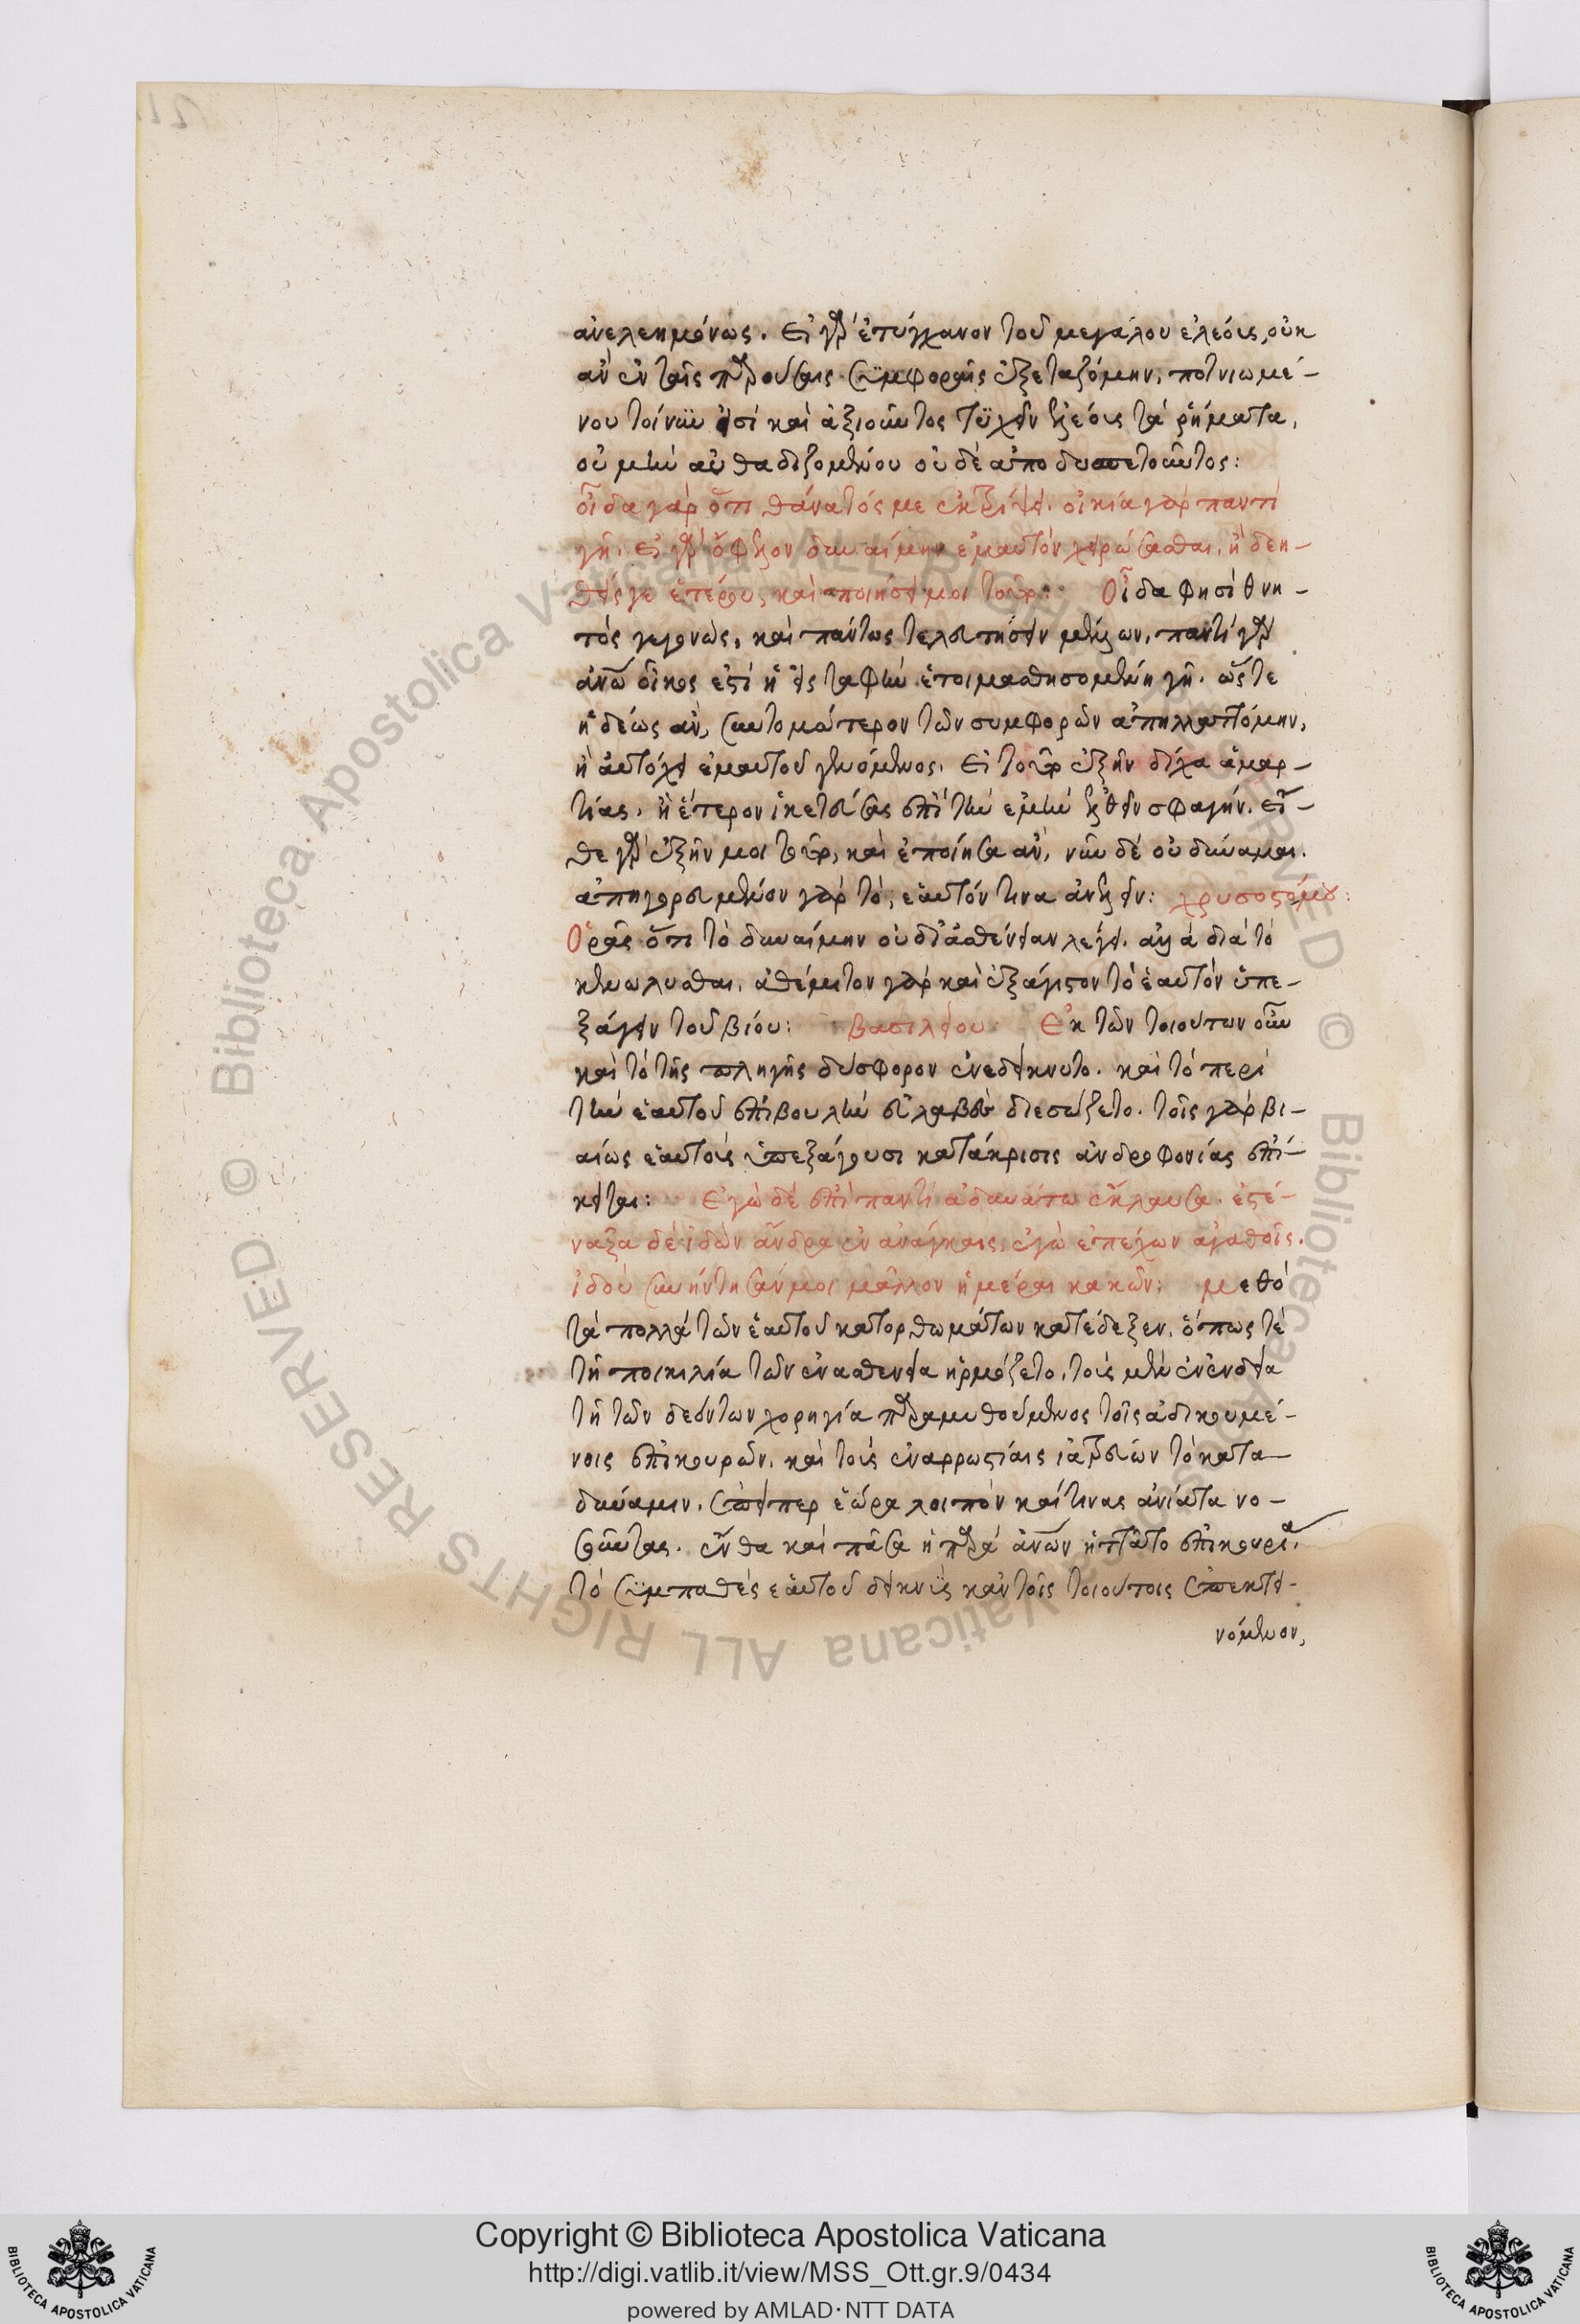 ἀνελεημόνως. Εἰ γὰρ ἐτύγχανον τοῦ μεγάλου ἐλέους, οὐκ
ἂν ἐν ταῖς παρούσαις συμφοραῖς ἐξεταζόμην, ποτνιωμέ-
νου τοίνυν ἐστὶ καὶ ἀξιοῦντος τυχεῖν ἐλέους τὰ ῥήματα,
οὐ μὴν αὐθαδιζομένου οὐδὲ ἀποδυσπετοῦντος:
οἶδα γὰρ ὅτι θάνατός με ἐκτρίψει. οἰκία γὰρ παντὶ
γῆ. εἰ γὰρ ὄφελον δυναίμην ἐμαυτὸν χειρώσασθαι, ἢ δεη-
θείς γε ἑτέρου, καὶ ποιήσει μοι τοῦτο: Οἶδα φησὶ θνη-
τὸς γεγονὼς, καὶ πάντως τελευτήσειν μέλλων, παντὶ γὰρ
ἀνῶ οἶκος ἐστὶ ἡ εἰς ταφὴν ἑτοιμασθησομένη γῆ. ὥστε
ἡδέως ἂν, συντομώτερον τῶν συμφορῶν ἀπηλλαττόμην,
ἢ αὐτόχειρ ἐμαυτοῦ γενόμενος, εἰ τοῦτο ἐξῆν δίχα ἁμαρ-
τίας, ἢ ἕτερον ἱκετεύσας ἐπὶ τὴν ἐμὴν ἐλθεῖν σφαγήν. εἴ-
θε γὰρ ἐξῆν μοι τοῦτο, καὶ ἐποίησα ἂν, νῦν δὲ οὐ δύναμαι.
ἀπηγορευμένον γὰρ τὸ, ἑαυτόν τινα ἀνελεῖν: χρυσοστόμου:
Ὁρᾷς ὅτι τὸ δυναίμην οὐ δι' ἀσθένειαν λέγει. ἀλλὰ διὰ τὸ
κεκωλυσθαι. ἀθέμιτον γὰρ καὶ ἐξάγιστον τὸ ἑαυτὸν ὑπε-
ξάγειν τοῦ βίου: βασιλείου Ἐκ τῶν τοιούτων οὖν
καὶ τὸ τῆς πληγῆς δύσφορον ἐνεδείκνυτο. καὶ τὸ περὶ
τὴν ἑαυτοῦ ἐπιβουλὴν εὐλαβὲς διεσώζετο. τοῖς γὰρ βι-
αίως ἑαυτοὺς ὑπεξάγουσι κατάκρισις ἀνδροφονίας ἐπί-
κειται: Ἐγὼ δὲ ἐπὶ παντὶ ἀδυνάτῳ ἔκλαυσα. ἐστέ-
ναξα δὲ ἰδὼν ἄνδρα ἐν ἀνάγκαις, ἐγὼ ἐπέχων ἀγαθοῖς.
ἰδοὺ συνήντησάν μοι μᾶλλον ἡμέραι κακῶν: μεθὸ
τὰ πολλὰ τῶν ἑαυτοῦ κατορθωμάτων κατέδειξεν, ὅπως τὲ
τῇ ποικιλία τῶν ἐν ἀσθενεία ἡρμόζετο, τοὺς μὲν ἐν ἐνδεία
τῇ τῶν δεόντων χορηγία παραμυθούμενος τοῖς ἀδικουμέ-
νοις ἐπικουρῶν, καὶ τοὺς ἐν ἀρρωστίαις ἰατρεύων τὸ κατὰ
δύναμιν, ἐπείπερ ἑώρα λοιπὸν καί τινας ἀνίατα νο-
σοῦντας. ἔνθα καὶ πᾶσα ἡ παρὰ ἀνῶν ἡττᾶτο ἐπικουρία,
τὸ συμπαθὲς ἑαυτοῦ δεικνὺς κἀν τοῖς τοιούτοις ἐπεκτει-
νόμενον,
Copyright © Biblioteca Apostolica Vaticana
http://digi.vatlib.it/view/MSS_Ott.gr.9/0434
powered by AMLAD·NTT DATA